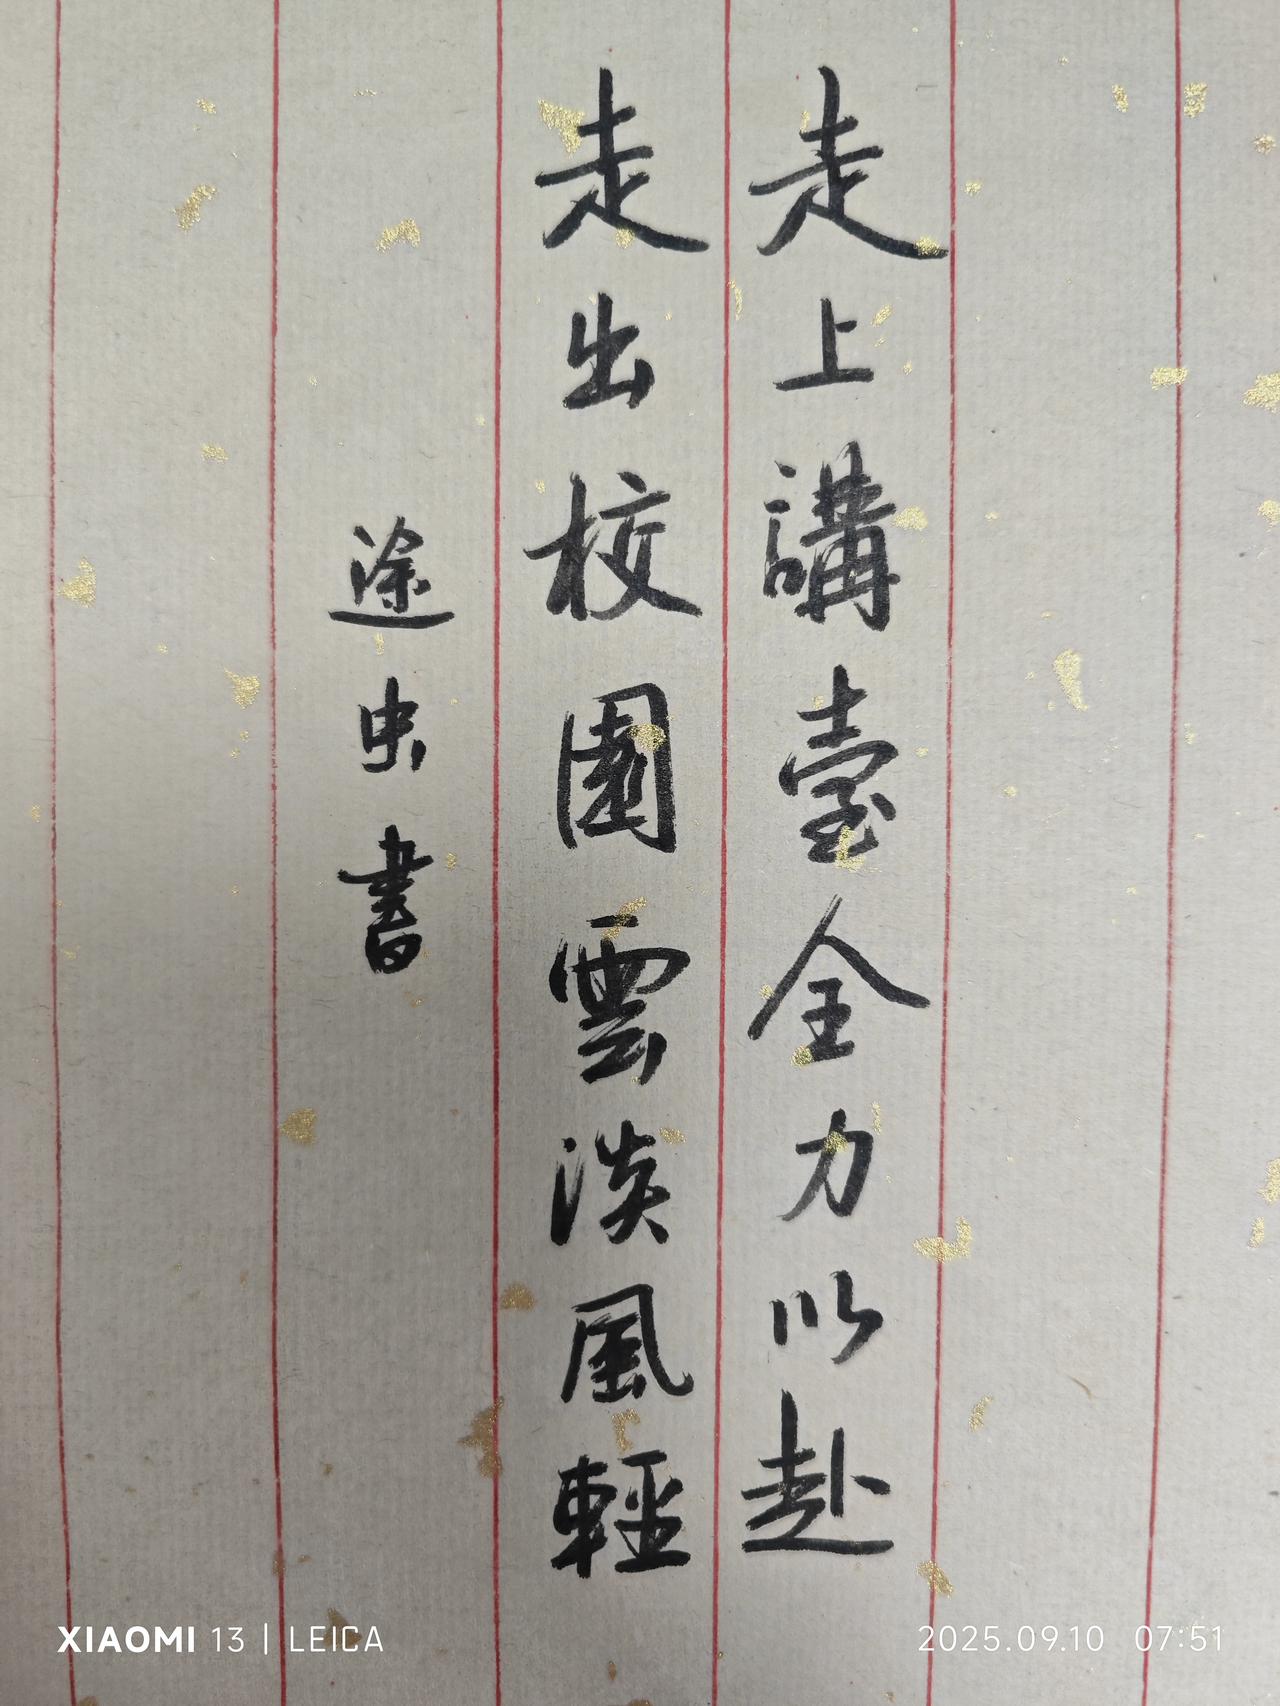 走上講臺全力以赴
走出校園雲淡風輕
途虫書
XIAOMI 13 | LEICA
2025.09.10 07:51